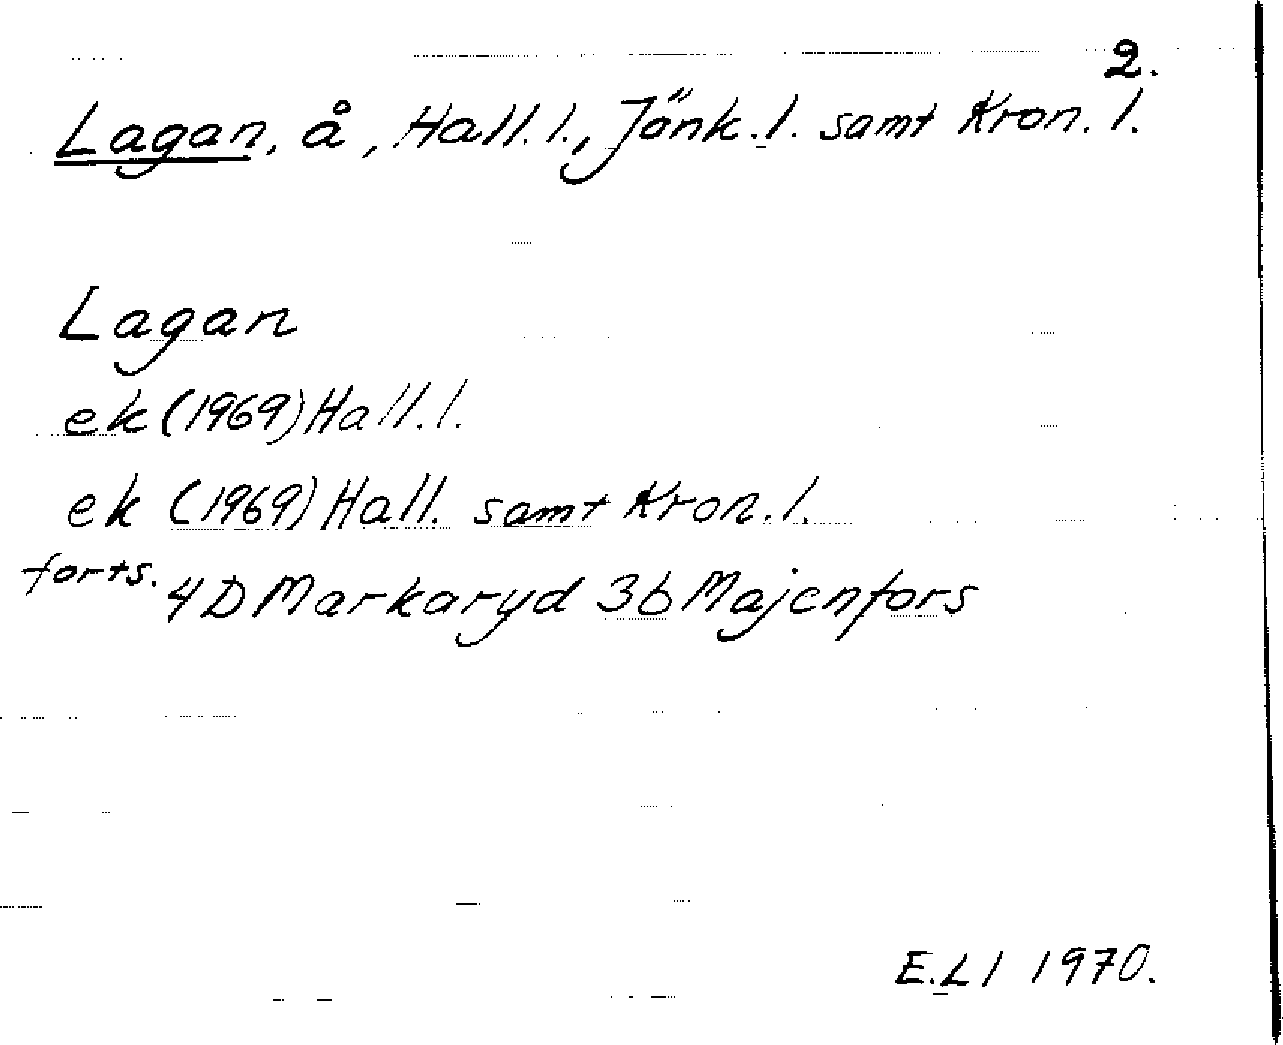 2.
Lagan, å, Hall.l., Jönk.l. samt Kron.l.
Lagan
ek (1969) Hall.l.
ek (1969) Hall. samt Kron.l.
forts. 4D Markaryd 3b Majenfors
E.Ll 1970.